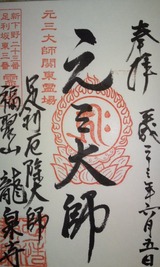 奉拝
元三大師関東霊場
元三大師
新下野二十三番
足利坂東三番
足利厄除大師
福聚山
龍泉寺
六月五日